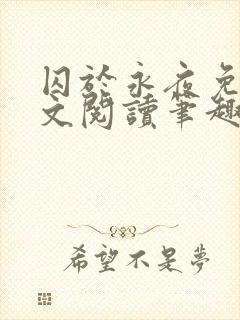 囚於永夜免
文閱讀筆趣
希望不是夢